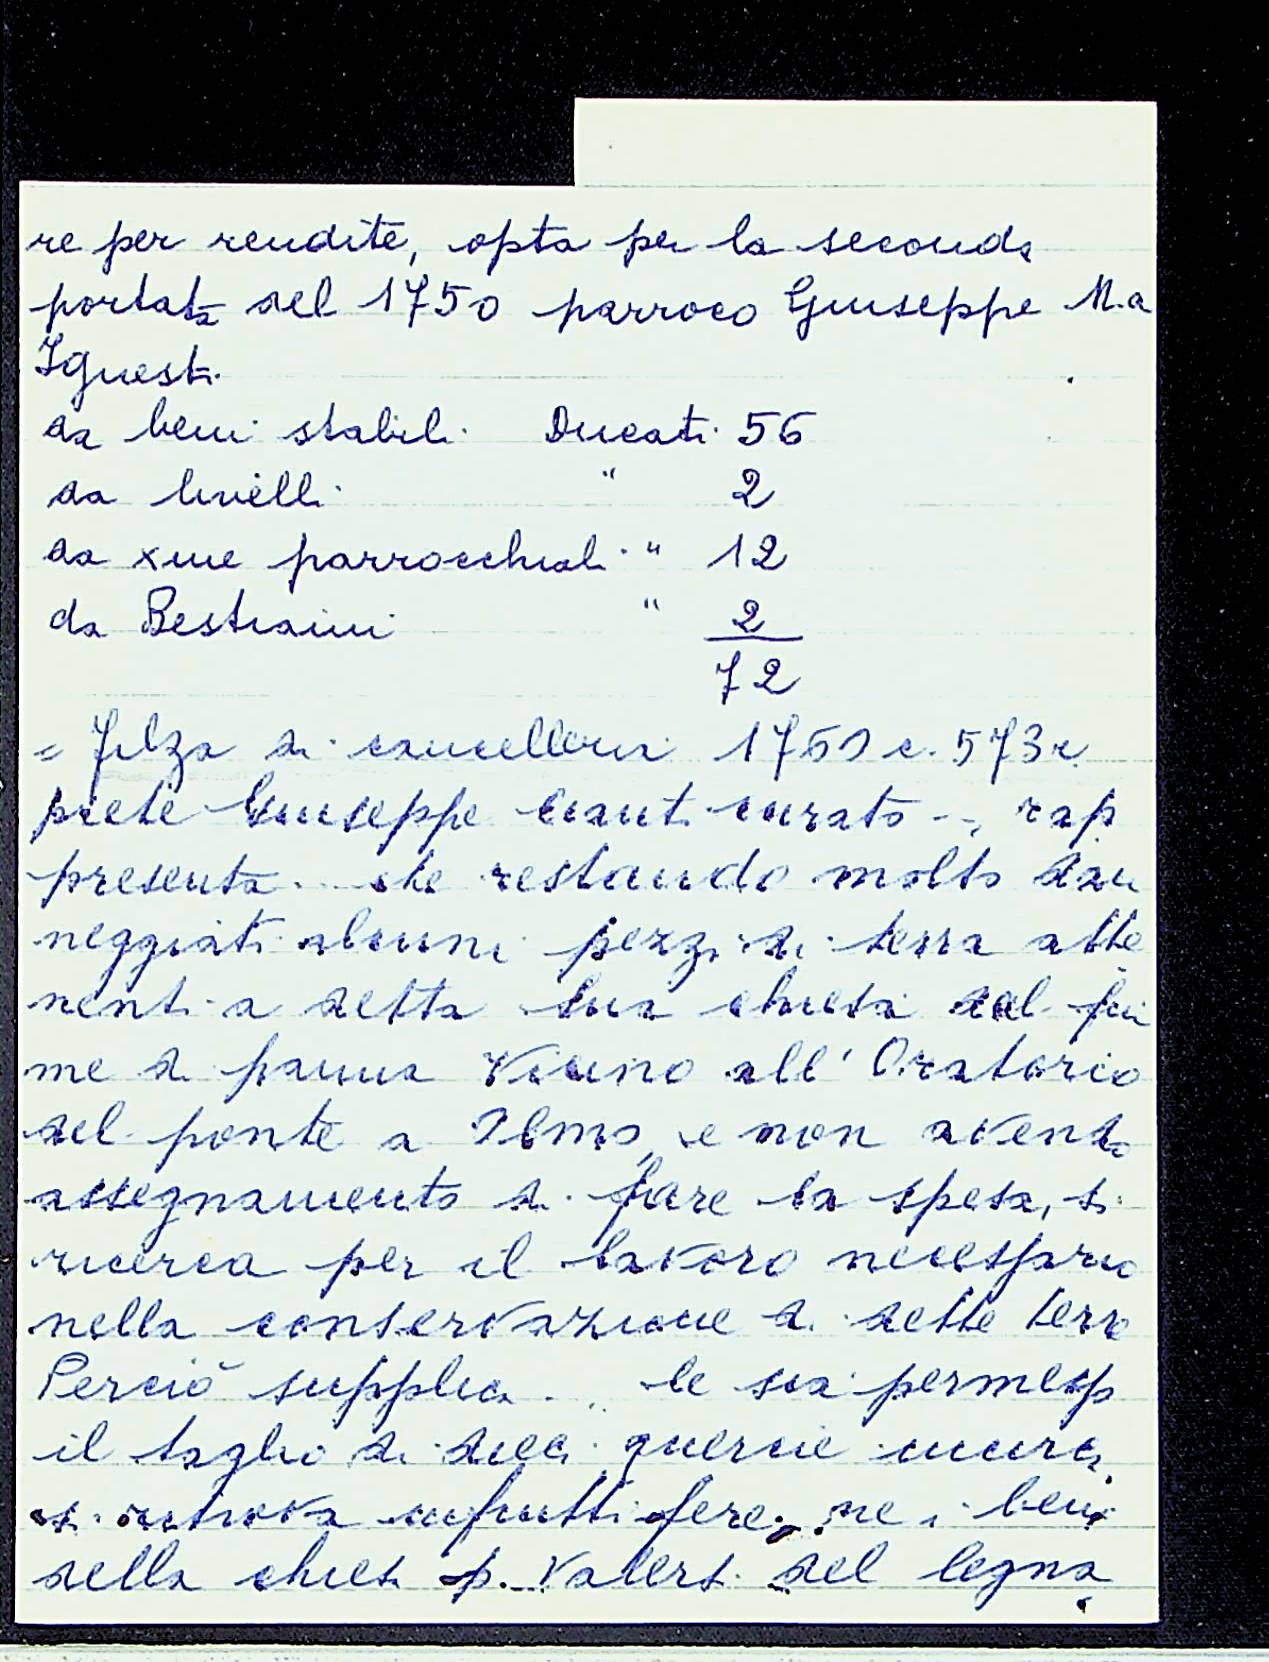 re per rendite, opta per la seconda
portata del 1750 parroco Giuseppe M.a
Ignesti.
da beni stabili Ducati 56
da livelli " 2
da xme parrocchiali " 12
da Bestiami " 2
72
= Filza di cancelleria 1760 c. 573 r.
prete Giuseppe curato .., rap
presenta... che restando molto dan
neggiati alcuni pezzi di terra atte
nenti a detta sua chiesa dal fiu
me di fauna vicino all'Oratorio
del ponte a Olmo, e non avendo
assegnamento di fare la spesa, si
ricerca per il lavoro necessario
nella conservazione di dette terre
Perciò supplica... le sia permesso
il taglio di dieci quercie
si ritrova infruttifere, ne i beni
della chiesa p. valersi del legna